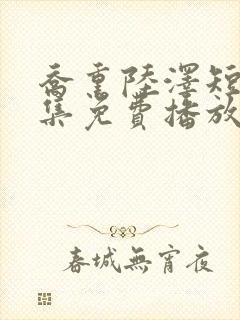 喬熏陸澤短
集免費播放
春城無宵夜